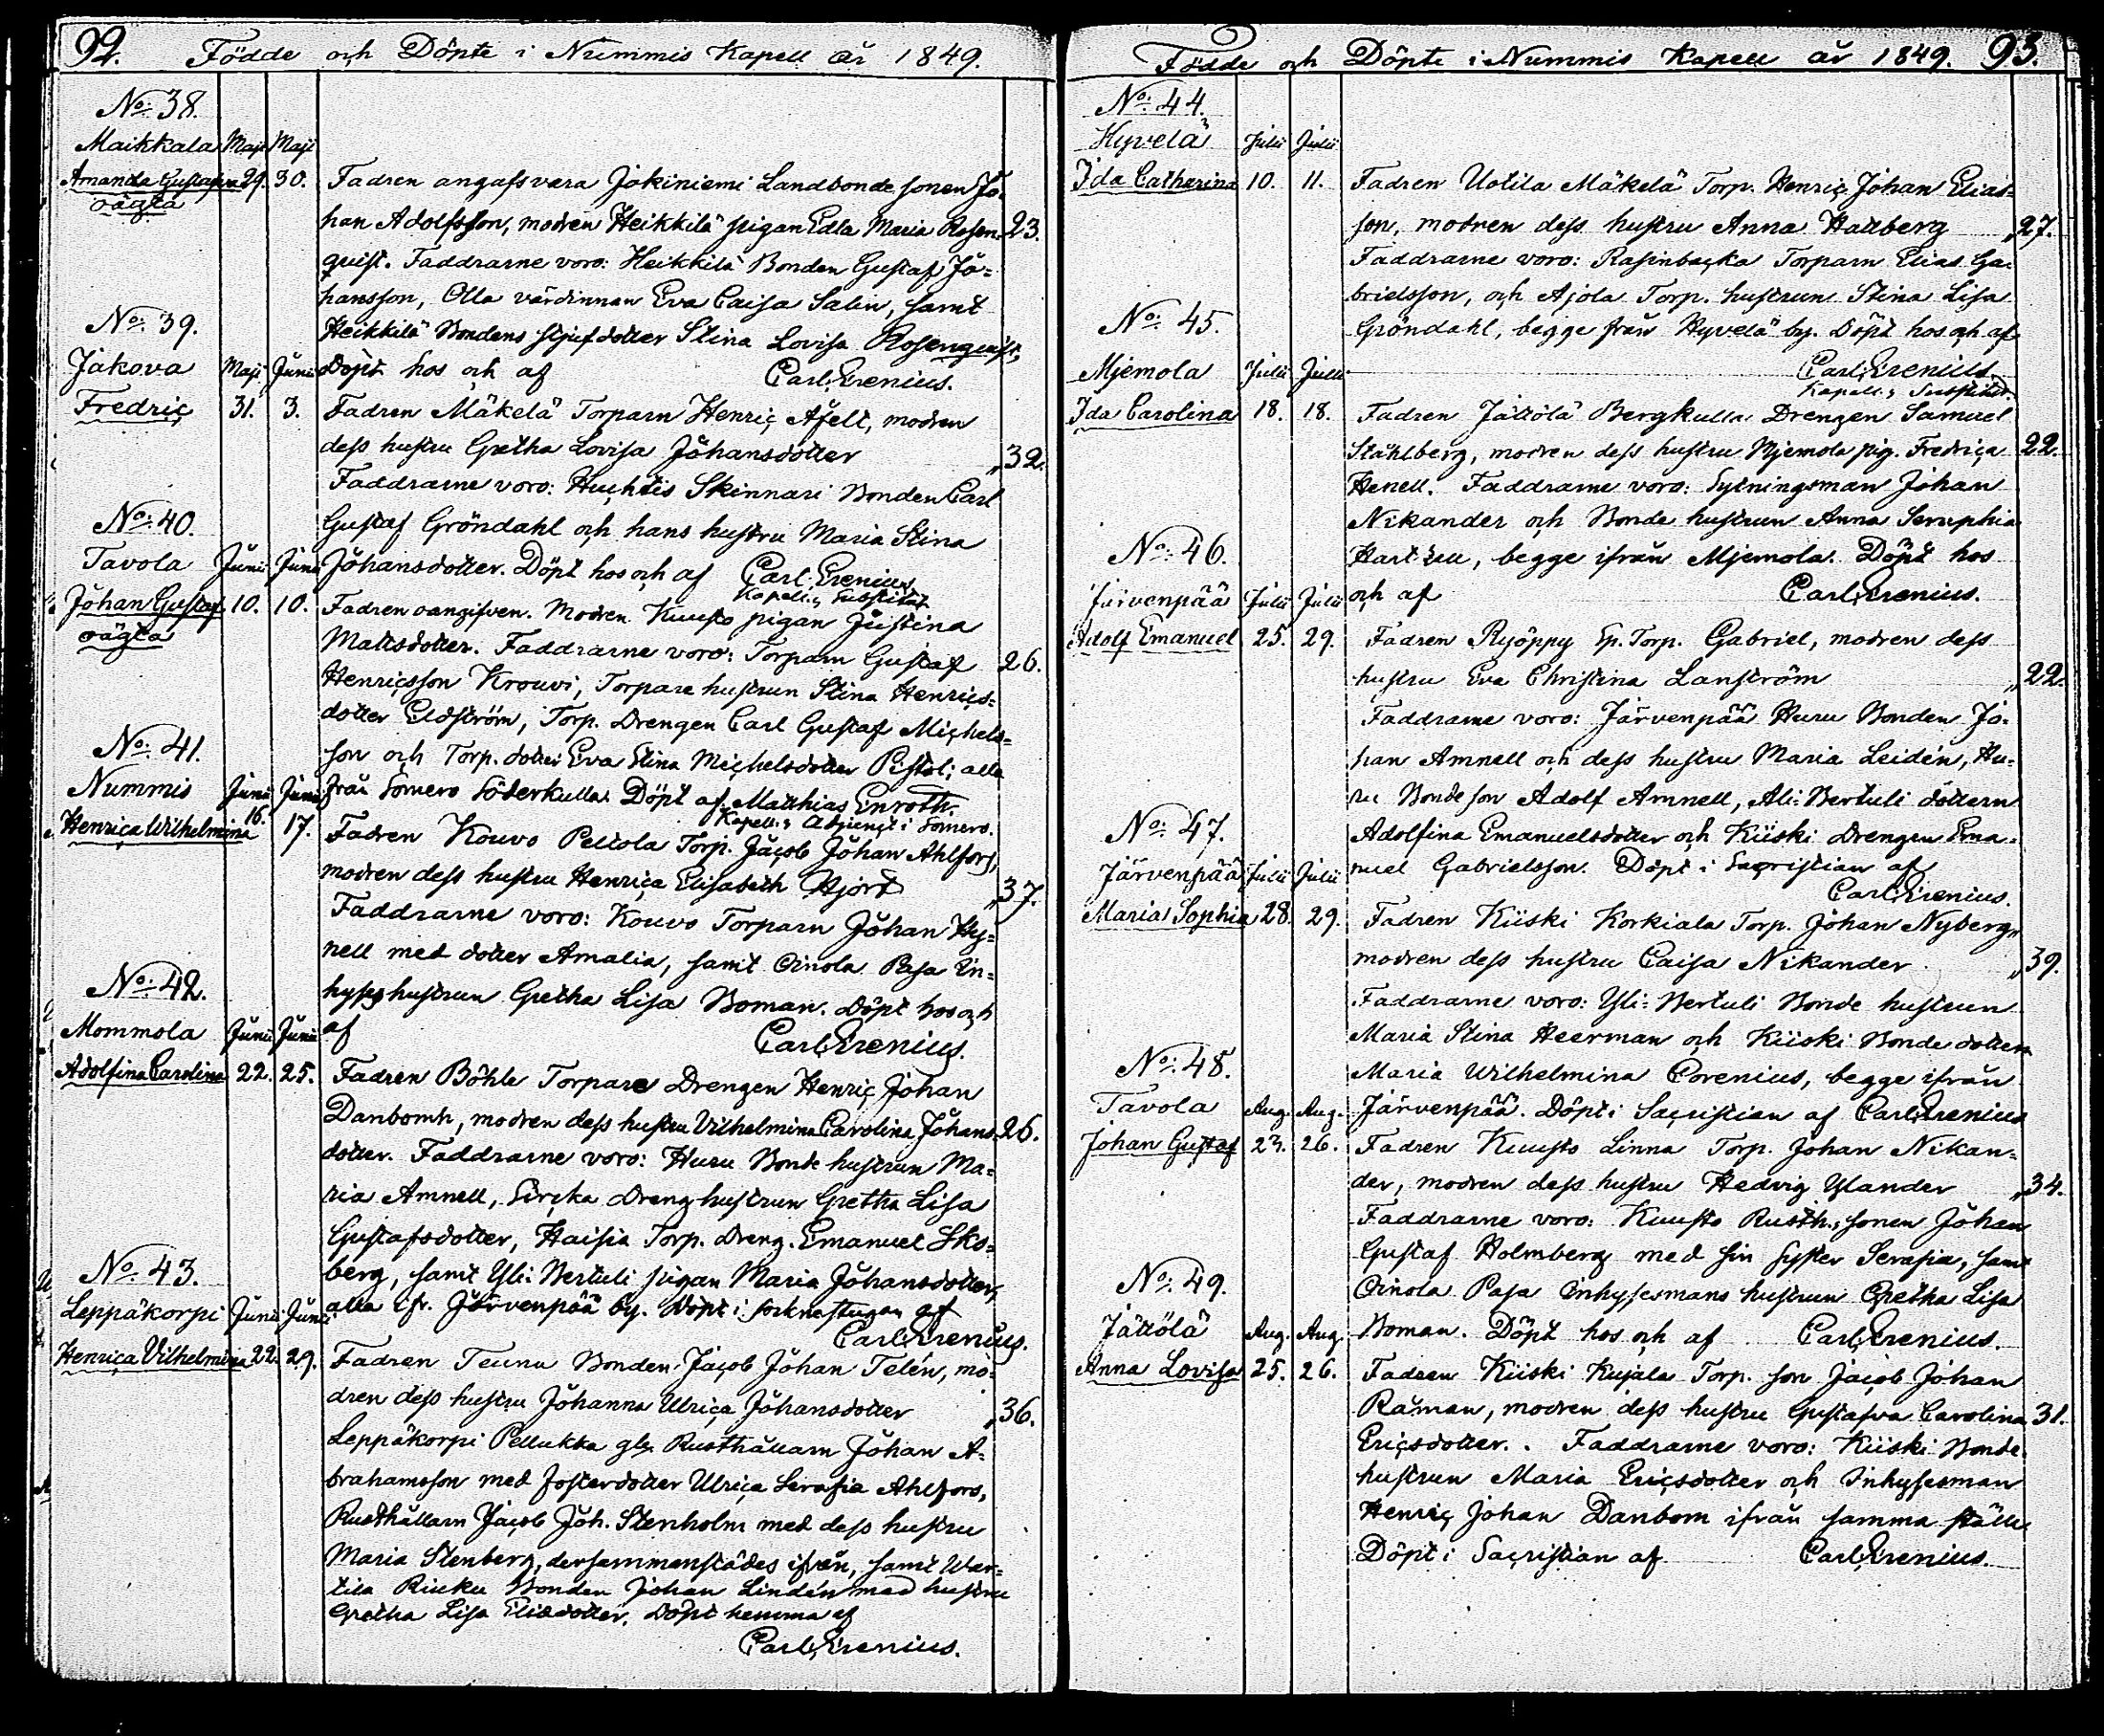 92. Födde och Döpte i Nummis Kapell år 1849.
No: 38.
Maikkala Maji Maji
Amanda Gustafva 29. 30. Fadren angafs vara Jokiniemi Landbonde sonen Jo-
oägta
han Adolfsson, modren Heikkilä pigan Edla Maria Rosen- 23.
quist. Faddrarne voro: Heikkilä Bonden Gustaf Jo-
hansson, Olla värdinnan Eva Caisa Salin, samt
No: 39.
Heikkilä Bondens stjufdotter Stina Lovisa Rosenquist,
Jakova Maji Junii Döpt hos och af Carl Grenius.
Fredric 31. 3. Fadren Mäkelä Torparn Henric Afelt, modren
dess hustru Gretha Lovisa Johansdotter „32.
Faddrarne voro: Huhtis Skinnari Bonden Carl
No: 40.
Gustaf Gröndahl och hans hustru Maria Stina
Tavola Junii Junii Johansdotter. Döpt hos och af Carl Grenius
Kapell:s Substitut
Johan Gustaf 10. 10. Fadren oangifven. Modren Kuusto pigan Justina
oägta
Mattsdotter. Faddrarne voro: Torparn Gustaf 26.
Henricsson Krouvi, Torpare hustrun Stina Henrics-
dotter Eldström, Torp. Drengen Carl Gustaf Michels-
No: 41.
son och Torp. dotter Eva Stina Michelsdotter Pistol; alla
Nummis Junii Junii från Somero Söderkulla. Döpt af Matthias Enroth.
Kapell:s Adjunct i Somero.
Henrica Wilhelmina 16. 17. Fadren Kouvo Peltola Torp. Jacob Johan Ahlfors,
modren dess hustru Henrica Elisabeth Hjort „37.
Faddrarne voro: Kouvo Torparn Johan Hy-
nell med dotter Amalia, samt Oinola Pasa In-
No: 42.
hyses hustrun Gretha Lisa Boman. Döpt hos och
Mommola Junii Junii af Carl Grenius.
Adolfina Carolina 22. 25. Fadren Böhle Torpare Drengen Henric Johan
Danbomh, modren dess hustru Vilhelmina Carolina Johans- 26.
dotter. Faddrarne voro: Huru Bonde hustrun Ma-
ria Amnell, Sircka Dreng hustrun Gretha Lisa
Gustafsdotter, Haisia Torp. Dreng. Emanuel Sko-
No: 43.
berg, samt Yli-Bertuli pigan Maria Johansdotter,
Leppäkorpi Junii Junii alla ifr. Järvenpää by. Döpt i socknestugan af
Carl Grenius.
Henrica Vilhelmina 22. 29. Fadren Teunu Bonden Jacob Johan Telén, mo-
dren dess hustru Johanna Ulrica Johansdotter „36.
Leppäkorpi Pellukka gl. Rusthållarn Johan A-
brahamsson med fosterdotter Ulrica Serafia Ahlfors,
Rusthållarn Jacob Joh. Stenholm med dess hustru
Maria Stenberg, dersammanstädes ifrån, samt War-
tila Rieku Bonden Johan Lindén med hustru
Gretha Lisa Eliædotter. Döpt hemma af
Carl Grenius.
Födde och Döpte i Nummis Kapell år 1849. 93.
No: 44.
Hyvelä Julii Julii
Ida Catharina 10. 11. Fadren Uotila Mäkelä Torp. Henric Johan Elias-
son, modren dess hustru Anna Hallberg „27.
Faddrarne voro: Rasinbacka Torparn Elias Ga-
brielsson, och Ajola Torp. hustrun Stina Lisa
No: 45.
Gröndahl, begge från Hyvelä by. Döpt hos och af
Mjemola Julii Julii Carl Grenius
Kapell:s Substitut.
Ida Carolina 18. 18. Fadren Jättölä Bergkulla Drengen Samuel
Ståhlberg, modren dess hustru Mjemola pig. Fredrica 22.
Henell. Faddrarne voro: Sytningsman Johan
Nikander och Bonde hustrun Anna Seraphia
No: 46.
Hartzell, begge ifrån Mjemola. Döpt hos
Järvenpää Julii Julii och af Carl Grenius.
Adolf Emanuel 25. 29. Fadren Ryöppy Sp. Torp. Gabriel, modren dess
hustru Eva Christina Lanström „22.
Faddrarne voro: Järvenpää Huru Bonden Jo-
han Amnell och dess hustru Maria Leidén, Hu-
ru Bonde son Adolf Amnell, Ali-Bertuli dottern
No: 47.
Adolfina Emanuelsdotter och Kiiski Drengen Ema-
Järvenpää Julii Julii nuel Gabrielsson. Döpt i Sacristian af
Carl Grenius.
Maria Sophia 28. 29. Fadren Kiiski Korkiala Torp. Johan Nyberg,
modren dess hustru Caisa Nikander „39.
Faddrarne voro: Yli-Bertuli Bonde hustrun
Maria Stina Heerman och Kiiski Bonde dottern
No: 48.
Maria Wilhelmina Corenius, begge ifrån
Tavola Aug. Aug. Järvenpää. Döpt i Sacristian af Carl Grenius
Johan Gustaf 23. 26. Fadren Kuusto Linna Torp. Johan Nikan-
der, modren dess hustru Hedvig Ylander „34.
Faddrarne voro: Kuusto Rusth:s sonen Johan
Gustaf Holmberg med sin syster Serafia, samt
No: 49.
Oinola Pasa Inhysesmans hustrun Gretha Lisa
Jättölä Aug. Aug. Boman. Döpt hos och af Carl Grenius.
Anna Lovisa 25. 26. Fadren Kiiski Kujala Torp. son Jacob Johan
Råman, modren dess hustru Gustafva Carolina 31.
Ericsdotter. Faddrarne voro: Kiiski Bonde-
hustrun Maria Ericsdotter och Inhysesman
Henric Johan Danbom ifrån samma ställe
Döpt i Sacristian af Carl Grenius.